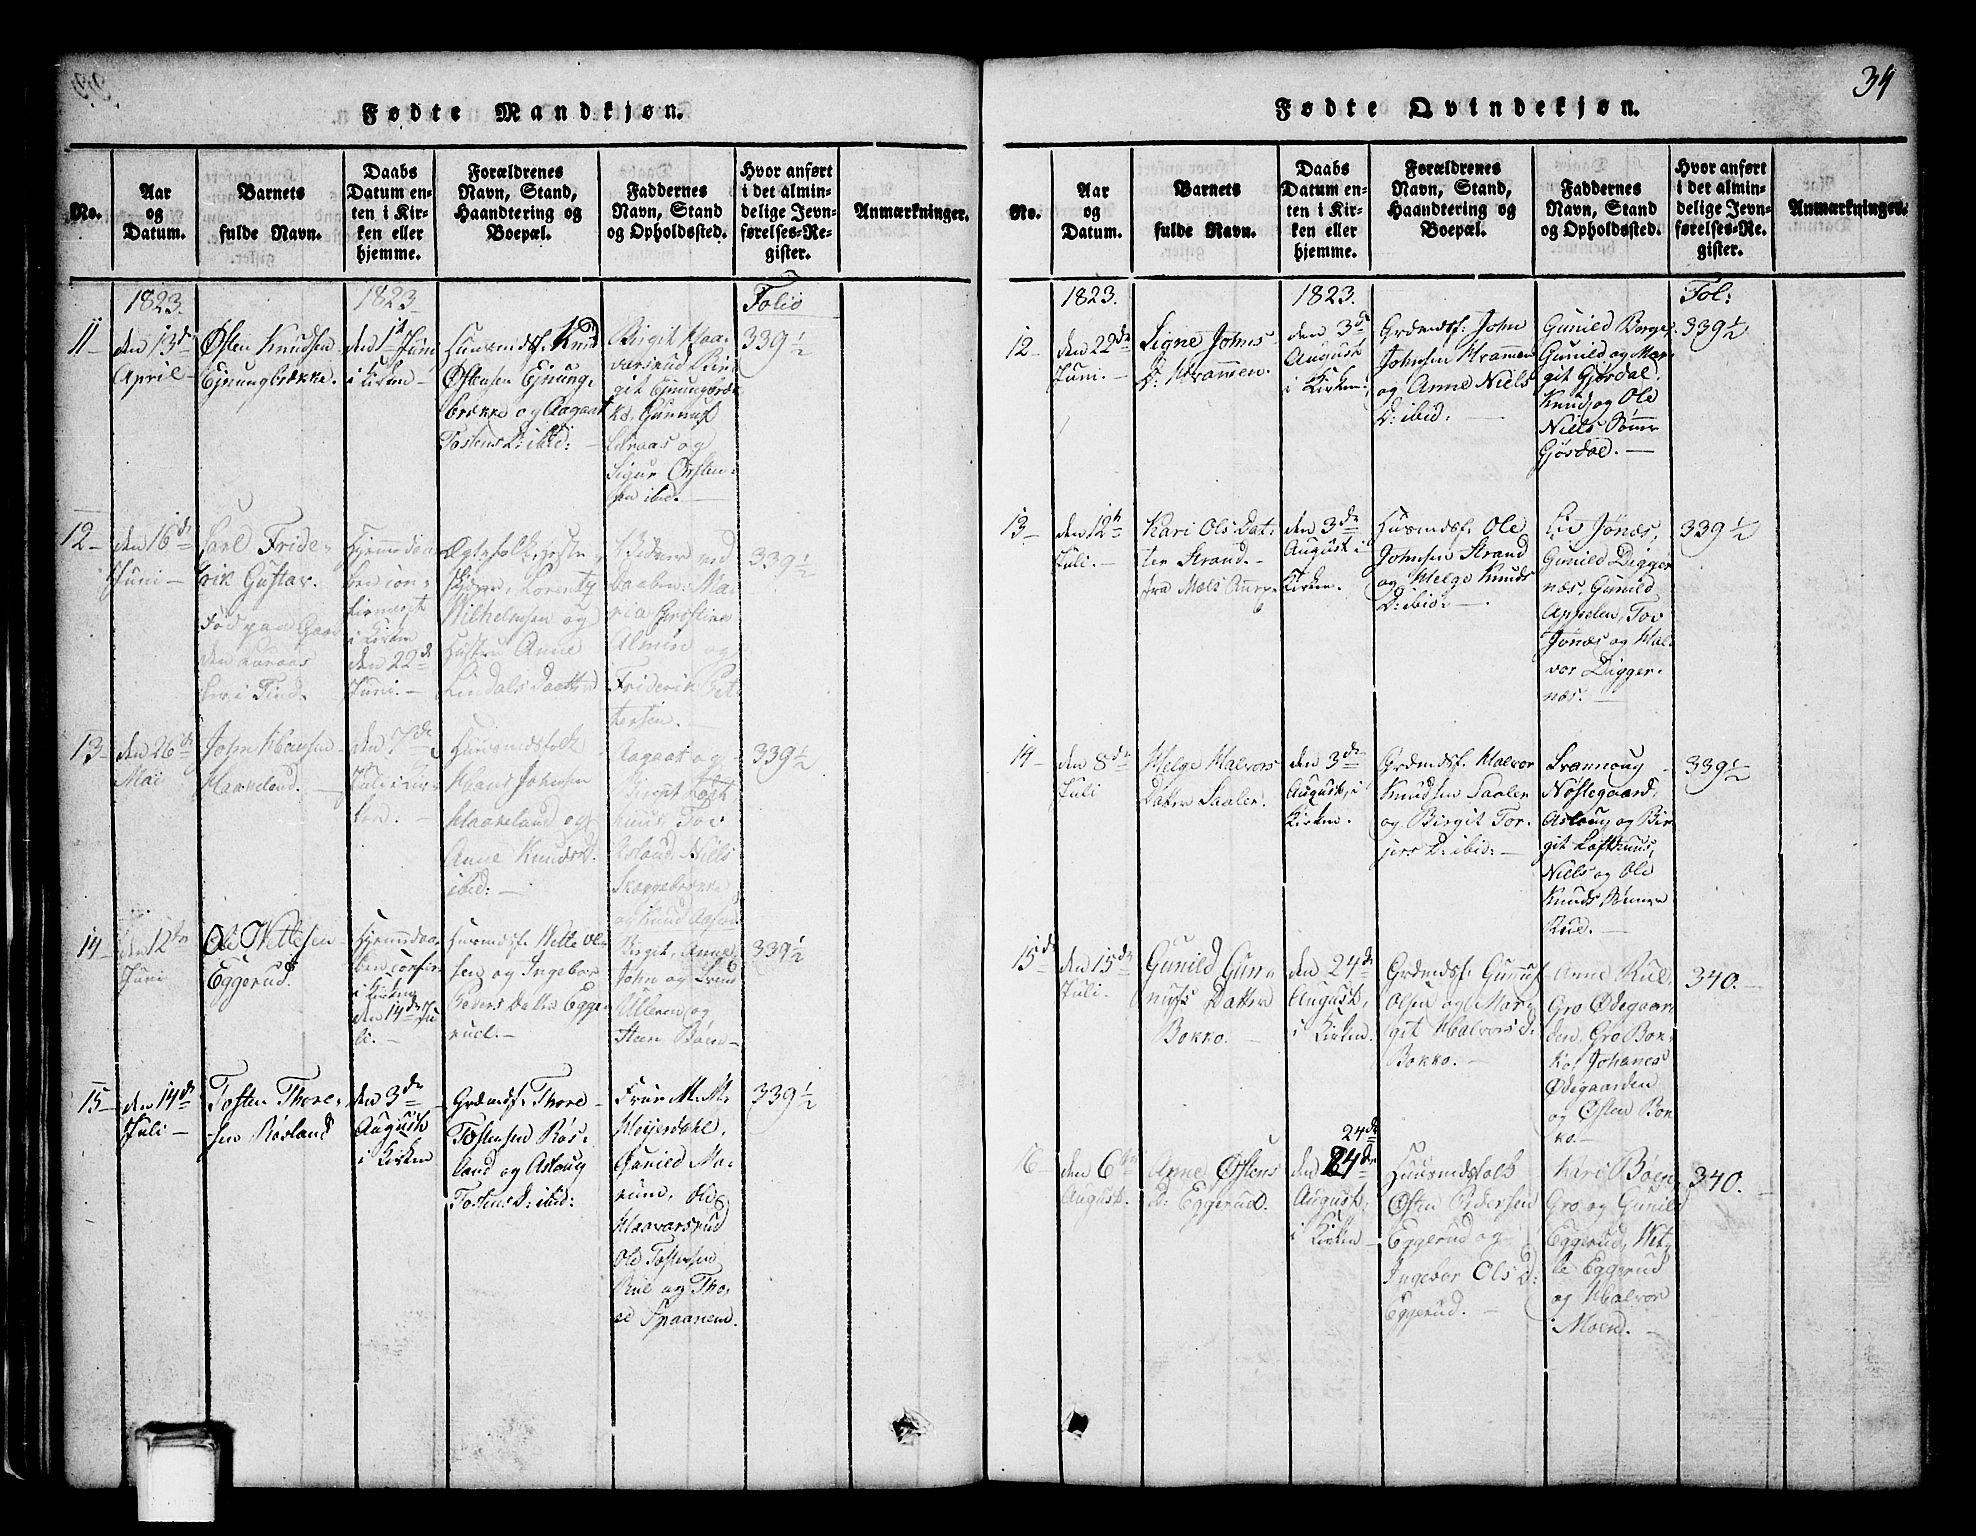 34
Fødte Mandkjøn.
No.
Aar
og
Datum.
Barnets
fulde Navn.
Daabs
Datum en-
ten i Kir-
ken eller
hjemme.
Forældrenes
Navn, Stand,
Haandtering og
Boepæl.
Faddernes
Navn, Stand
og Opholdssted.
Hvor anført
i det almin-
delige Jevn-
førelses-Re-
gister.
Anmærkninger.
1823.
1823
Folio
11
den 13de
April
Østen Knudsen
Ejnungbrække.
den 1te Juni
i Kirken
Huusmdsf. Knud
Østensen Ejnung-
brække og Aagaat
Tostens D: ibid:
Birgit Haa-
varsrud Bir-
git Ejnungbræk-
ke, Gunnuf
og
Sigur Østen-
sen ibid.
339½
12
den 16de
Juni
Carl Fride-
rik Gustav.
Fød paa Gaar-
den
i Tind.
Hjemmedaa-
ben con-
firmeret
i Kirken
den 22de
Juni.
Ægtefolk,
Lorentz
Wilhelmsen og
Hustru Anne
Lindals Daatter
ved
Daaben: Ma-
ria Christine
Almin og
Friderik Pet-
tersen.
339½
13
den 26de
Mai
John Hansen
Haakeland.
den 7de
Juli i Kir-
ken.
Huusmdsfolk
Hans Johnsen
Haakeland og
Anne Knudsd.
ibid:
Aagaat og
Birgit Loft-
huus Tov
Asland, Niels
Skaggebrække
og Knud
339½
14
den 12te
Juni
Ole Wettesen
Eggerud.
Hjemmedaa-
ben confir.
i Kirken
den 14de Ju-
li.
Huusmdsf. Wette Ol-
sen og Ingebor
Peders Datter Egge-
rud.
Birgit, Anne,
John og
Ulleren og
Steen Bøen
339½
15
den 14de
Juli
Tosten Thore-
sen Rosland
den 3de
August
i Kirken
Grdmdsf. Thore
Tostensen Ros-
land og Aslaug
Tostens D: ibid:
Frue M. M.
Meyerdahl,
Gunild Ma-
rum, Ole
Haavarsrud
Ole Tostensen
Rue og Tho-
re Spaanem.
339½
Fødte Qvindekjøn.
No.
Aar
og
Datum.
Barnets
fulde Navn.
Daabs
Datum en-
ten i Kir-
ken eller
hjemme.
Forældrenes
Navn, Stand,
Haandtering og
Boepæl.
Faddernes
Navn, Stand
og Opholdssted.
Hvor anført
i det almin-
delige Jevn-
førelses-Re-
gister.
Anmærkninger.
1823.
1823.
Fol:
12
den 22de
Juni.
Signe Johns
D: Kramen.
den 3de
August
i Kirken.
Grdmdsf: John
Johnsen Kramen
og Anne Niels
D: ibid.
Gunild Borge,
Gunild og Mar-
git Gjørdal.
Knud og Ole
Niels Sønner
Gjørdal.
339½
13
den 12te
Juli.
Kari Ols Dat-
ter Strand.
fra Mæls Annex
den 3de
August i
Kirken.
Huusmdsf. Ole
Johnsen Strand
og Helge Knuds
D: ibid:
Liv Jønæs,
Gunild Digger-
næs, Gunild
Appelen, Tov
Jønæs og Hal-
vor Digger-
næs.
339½
14
den 8de
Juli
Helge Halvors
Datter Saaler.
den 3de
August, i
Kirken.
Grdmdsf. Halvor
Knudsen Saaler
og Birgit Tor-
jers D: ibid:
Nøstegaard,
Aslaug og Bir-
git Lofthuus,
Niels og Ole
Knuds Sønner
Rue.
339½
15de
den 15de
Juli.
Gunild Gun-
nufs Datter
Bokko.
den 24de
August,
i Kirken.
Grdmdsf. Gunnuf
Olsen og Mar-
git Halvorsd.
Bokko.
Anne Rue,
Gro Ødegaar-
den, Gro Bok-
ko, Johanes
Ødegaarden
og Østen Bok-
ko.
340.
16
den 6te
August.
Anne Østens
D: Eggerud.
24de
den 24de
August,
i Kirken
Huusmdsfolk
Østen Pedersen
Eggerud og
Ingebor Ols D:
Eggerud.
Kari Bøen
Gro og Gunild
Eggerud, Wet-
le Eggerud
og Halvor
Moend.
340.